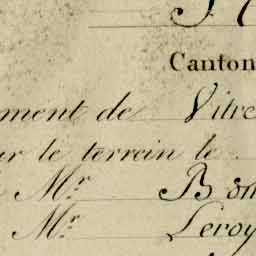 Canton
ment de Vitré
ur le terrein le
Mr. Bon
Mr. Leroy